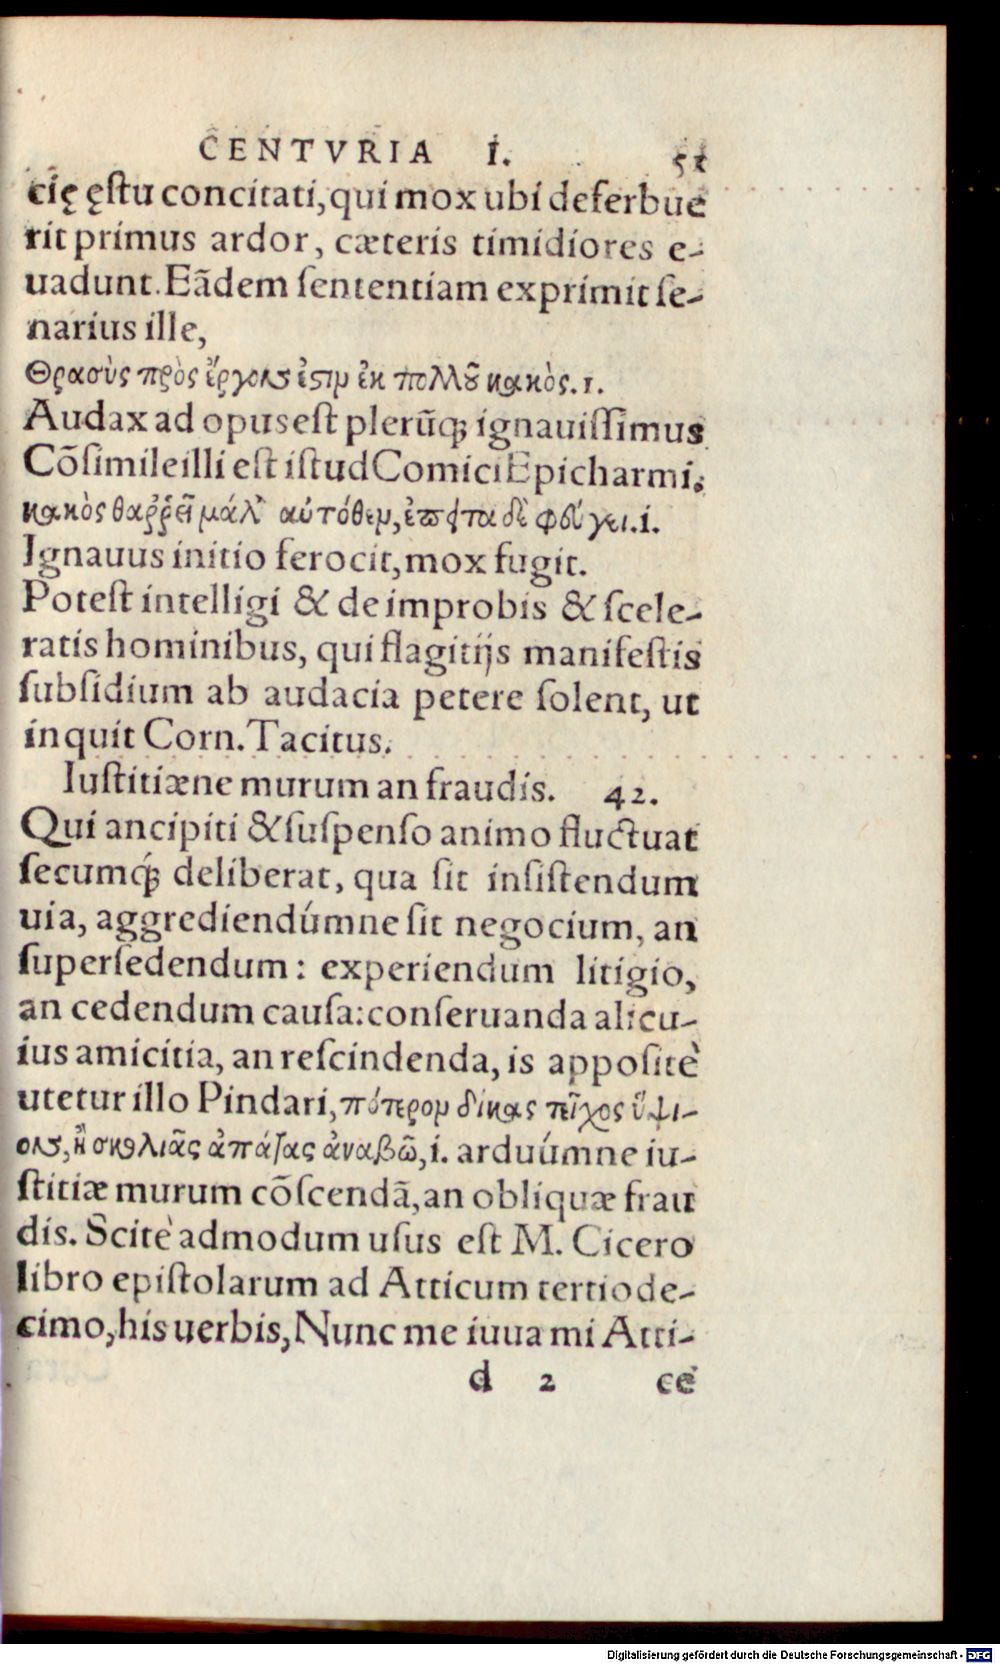 CENTVRIA I. 51
cię ęſtu concitati, qui mox ubi deferbue
rit primus ardor, cæteris timidiores e-
uadunt. Eãdem ſententiam exprimit ſe-
narius ille,
Θρασὺς πρὸς ἔργοις ἐστὶν ἐκ πολλοῦ κακὸς. 1.
Audax ad opus eſt plerũq; ignauiſſimus
Cõſimile illi eſt iſtud Comici Epicharmi.
κακὸς θαῤῥεῖ μάλ' αὐτόθεν, ἔπειτα δὲ φεύγει. i.
Ignauus initio ferocit, mox fugit.
Poteſt intelligi & de improbis & ſcele-
ratis hominibus, qui flagitijs manifeſtis
ſubſidium ab audacia petere ſolent, ut
inquit Corn. Tacitus.
Iuſtitiæne murum an fraudis. 42.
Qui ancipiti & ſuſpenſo animo fluctuat
ſecumq́; deliberat, qua ſit inſiſtendum
uia, aggrediendúmne ſit negocium, an
ſuperſedendum: experiendum litigio,
an cedendum cauſa: conſeruanda alicu-
ius amicitia, an reſcindenda, is appoſitè
utetur illo Pindari, πότερον δίκας τεῖχος ὕψι-
ον, ἢ σκολιᾶς ἀπάτας ἀναβῶ, i. arduúmne iu-
ſtitiæ murum cõſcendã, an obliquæ frau
dis. Scitè admodum uſus eſt M. Cicero
libro epiſtolarum ad Atticum tertiode-
cimo, his uerbis, Nunc me iuua mi Atti-
d 2 ce
Digitalisierung gefördert durch die Deutsche Forschungsgemeinschaft - DFG